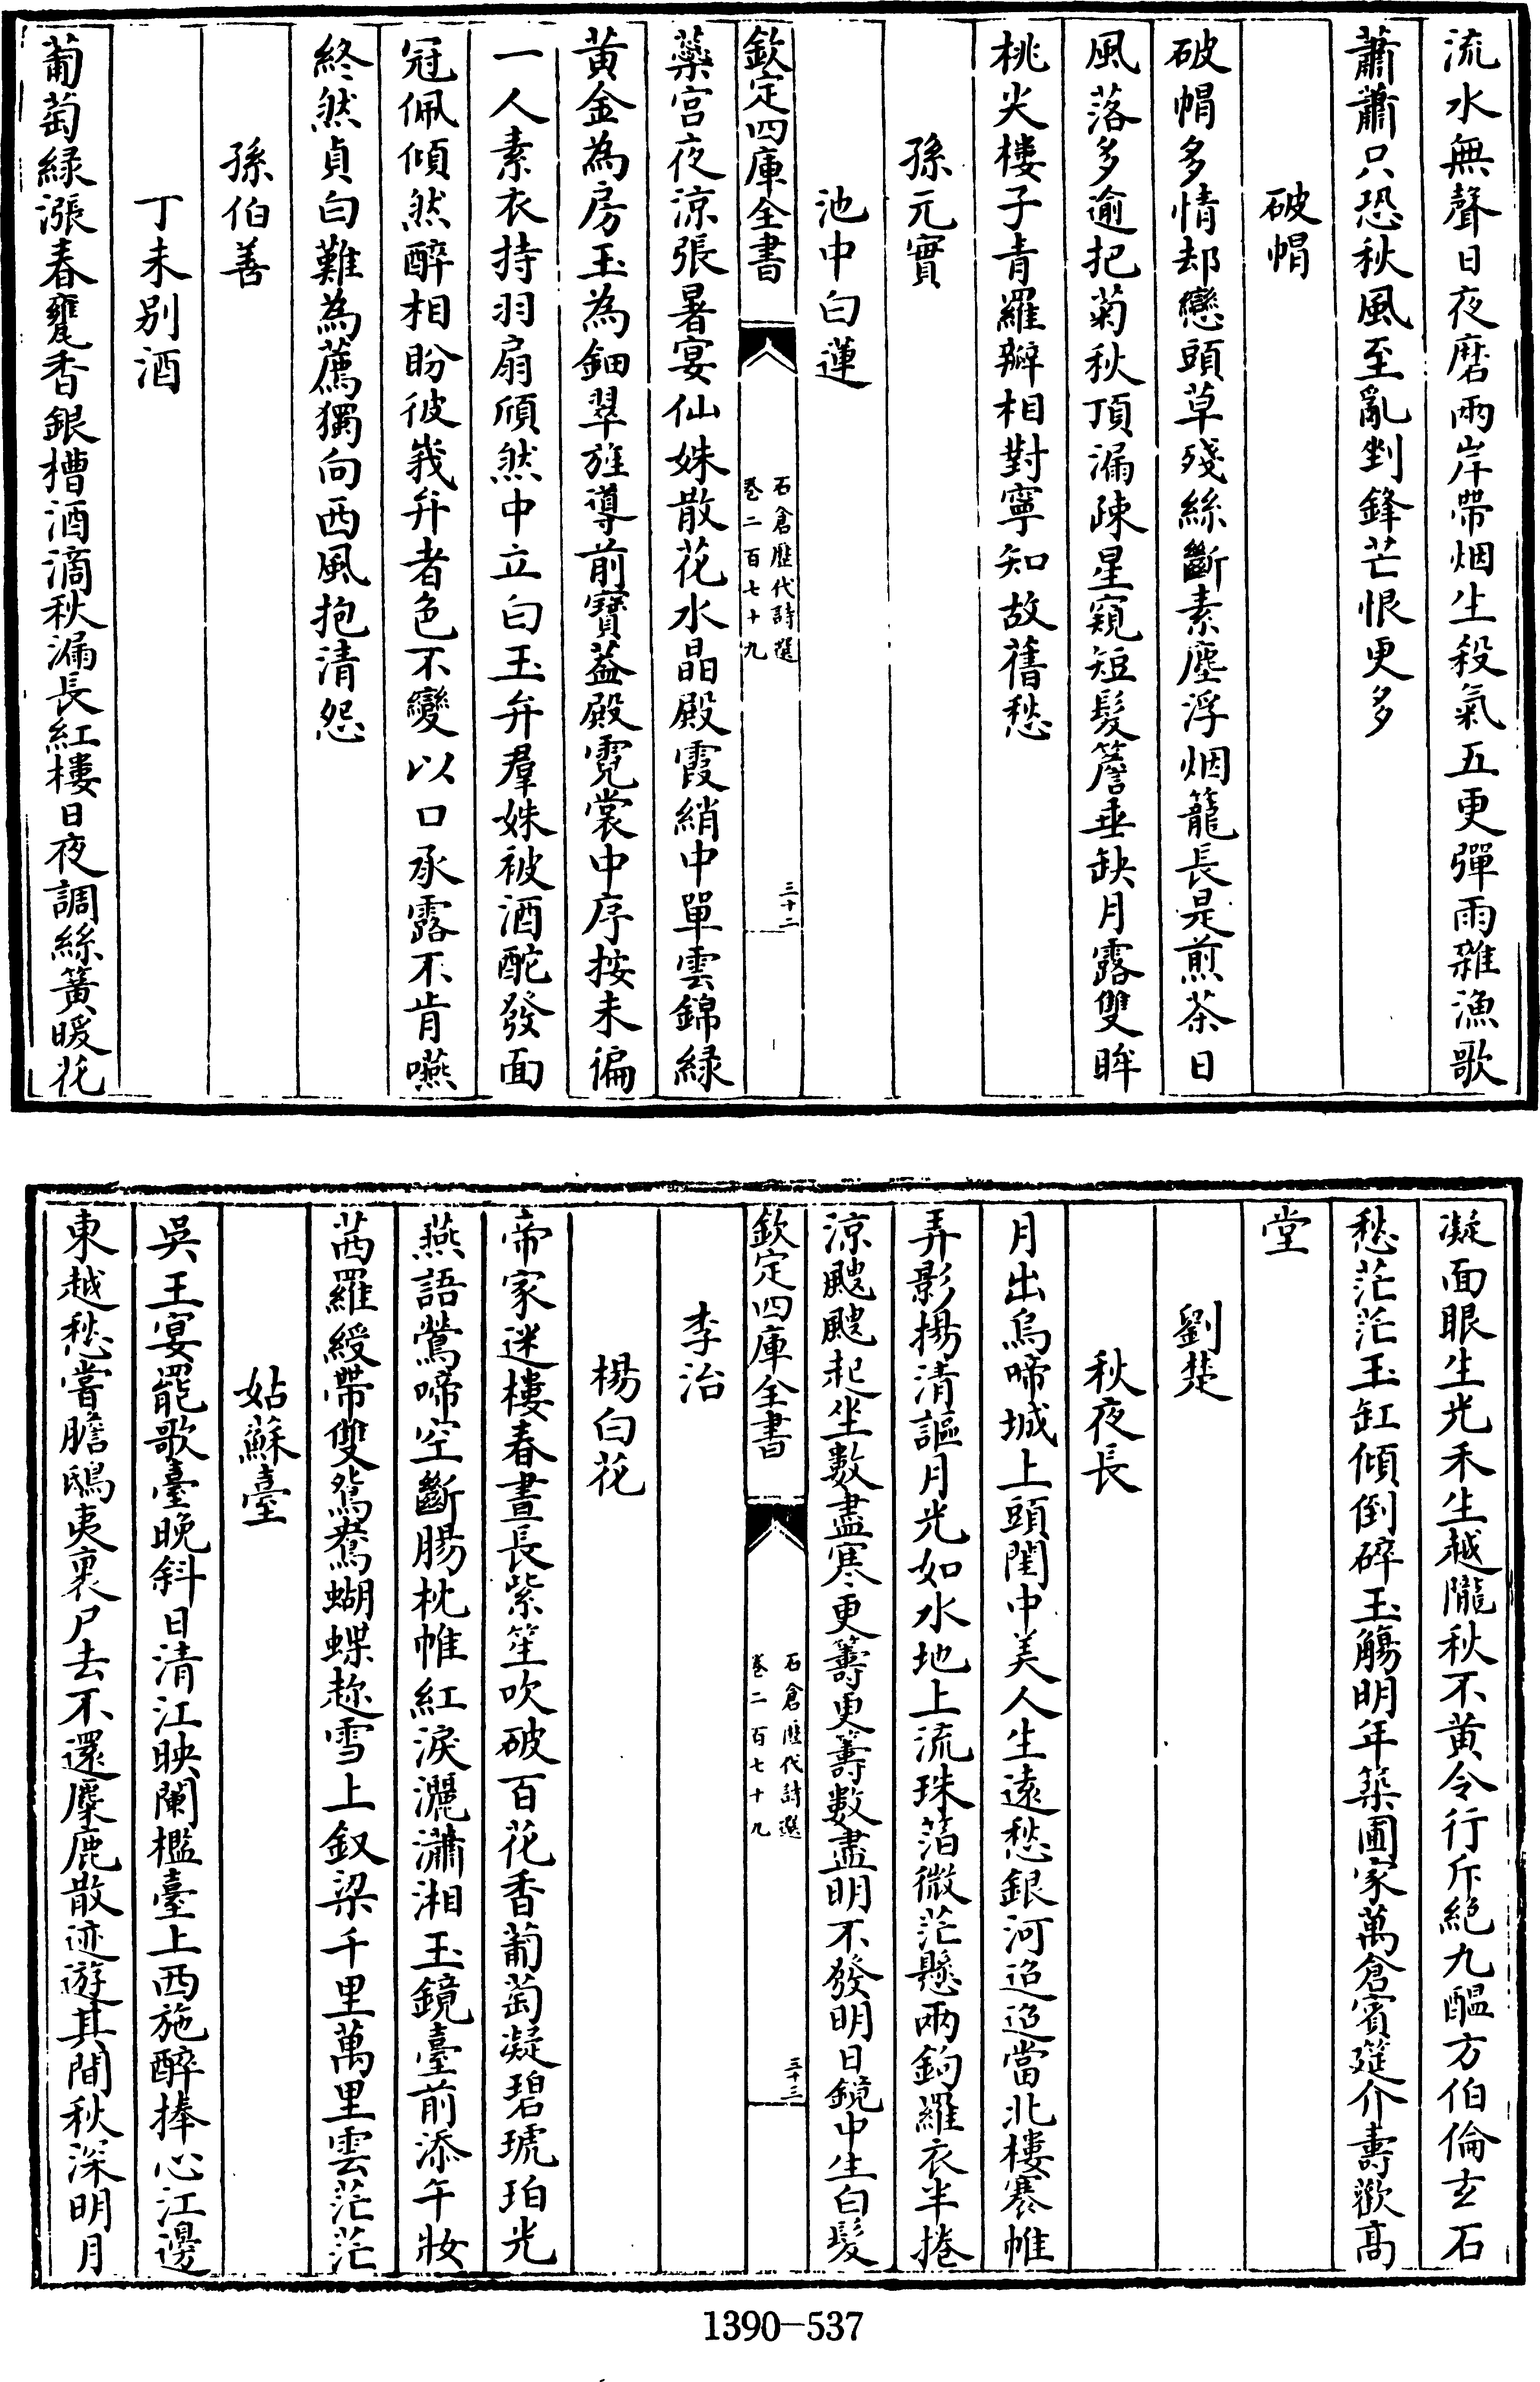 流水無聲日夜磨兩岸帶烟生殺氣五更彈雨雜漁歌
蕭蕭只恐秋風至亂剉鋒芒恨更多
破帽
破帽多情却戀頭草殘絲斷素塵浮烟籠長是煎茶日
風落多逾把菊秋頂漏疎星窺短髮簷垂缺月露雙眸
桃尖樓子青羅辦相對寧知故舊愁
孫元實
池中白蓮
欽定四庫全書
石倉歷代詩選
卷二百七十九
三十二
蘂宫夜涼張暑宴仙姝散花水晶殿霞綃中單雲錦緑
黄金為房玉為鈿翠旌導前寳葢殿霓裳中序按未徧
一人素衣持羽扇頎然中立白玉弁羣姝被酒酡發面
冠佩傾然醉相盼彼峩弁者色不變以口承露不肯嚥
終然貞白難為薦獨向西風抱清怨
孫伯善
丁未别酒
葡萄緑漲春甕香銀槽酒滴秋漏長紅樓日夜調絲簧暖花
凝面眼生光禾生越隴秋不黄令行斥絶九醖方伯倫玄石
愁茫茫玉缸傾倒碎玉觴明年築圃家萬倉賓筵介壽歡髙
堂
劉楚
秋夜長
月出烏啼城上頭閨中美人生遠愁銀河迢迢當北樓褰帷
弄影揚清謳月光如水地上流珠箔微茫懸兩鉤羅衣半捲
涼颼颼起坐數盡寒更籌更籌數盡明不發明日鏡中生白髮
欽定四庫全書
石倉歷代詩選
卷二百七十九
三十三
李治
楊白花
帝家迷樓春晝長紫笙吹破百花香葡萄凝碧琥珀光
燕語鶯啼空斷腸枕帷紅淚灑瀟湘玉鏡臺前添午妝
茜羅綬帶雙鴛鴦蝴蝶趂雪上釵梁千里萬里雲茫茫
姑蘇臺
吳王宴罷歌臺晚斜日清江映闌檻臺上西施醉捧心江邊
東越愁嘗膽鴟夷裹尸去不還麋鹿散迹遊其間秋深明月
1390-537